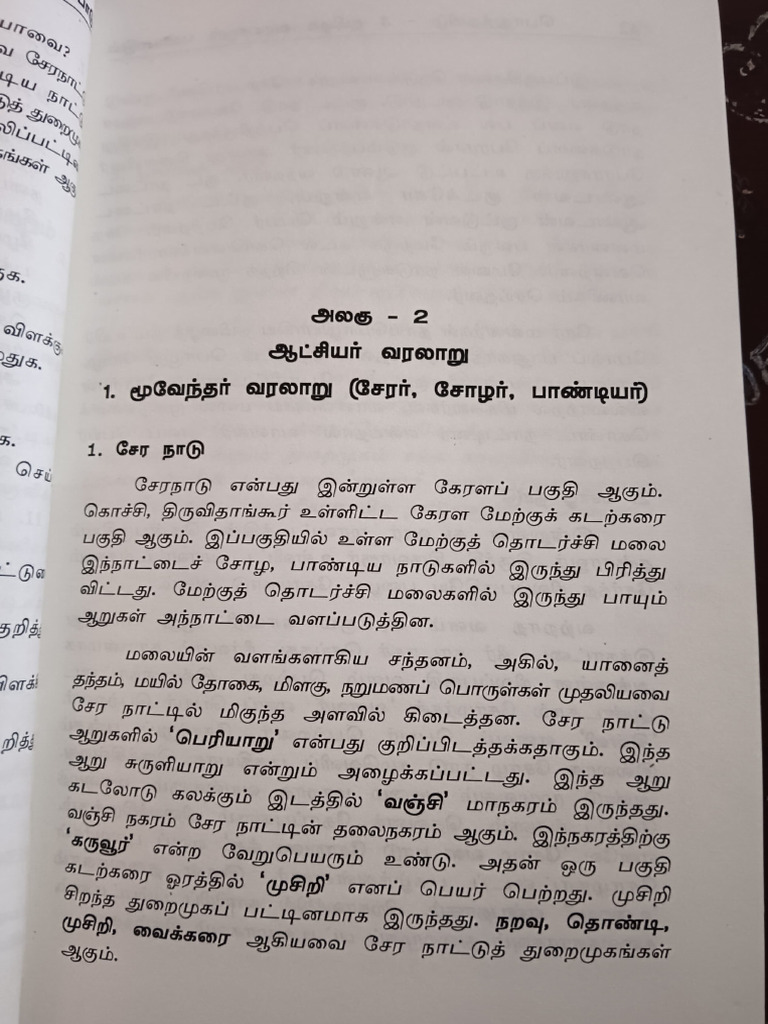 பாவை?
அலகு - 2
ஆட்சியர் வரலாறு
1. மூவேந்தர் வரலாறு (சேரர், சோழர், பாண்டியர்)
1. சேர நாடு
சேரநாடு என்பது இன்றுள்ள கேரளப் பகுதி ஆகும்.
கொச்சி, திருவிதாங்கூர் உள்ளிட்ட கேரள மேற்குக் கடற்கரை
பகுதி ஆகும். இப்பகுதியில் உள்ள மேற்குத் தொடர்ச்சி மலை
இந்நாட்டைச் சோழ, பாண்டிய நாடுகளில் இருந்து பிரித்து
விட்டது. மேற்குத் தொடர்ச்சி மலைகளில் இருந்து பாயும்
ஆறுகள் அந்நாட்டை வளப்படுத்தின.
மலையின் வளங்களாகிய சந்தனம், அகில், யானைத்
தந்தம், மயில் தோகை, மிளகு, நறுமணப் பொருள்கள் முதலியவை
சேர நாட்டில் மிகுந்த அளவில் கிடைத்தன. சேர நாட்டு
ஆறுகளில் ‘பெரியாறு’ என்பது குறிப்பிடத்தக்கதாகும். இந்த
ஆறு சுருளியாறு என்றும் அழைக்கப்பட்டது. இந்த ஆறு
கடலோடு கலக்கும் இடத்தில் ‘வஞ்சி’ மாநகரம் இருந்தது.
வஞ்சி நகரம் சேர நாட்டின் தலைநகரம் ஆகும். இந்நகரத்திற்கு
‘கருவூர்’ என்ற வேறுபெயரும் உண்டு. அதன் ஒரு பகுதி
கடற்கரை ஓரத்தில் ‘முசிறி’ எனப் பெயர் பெற்றது. முசிறி
சிறந்த துறைமுகப் பட்டினமாக இருந்தது. நறவு, தொண்டி,
முசிறி, வைக்கரை ஆகியவை சேர நாட்டுத் துறைமுகங்கள்
ஆகும்.